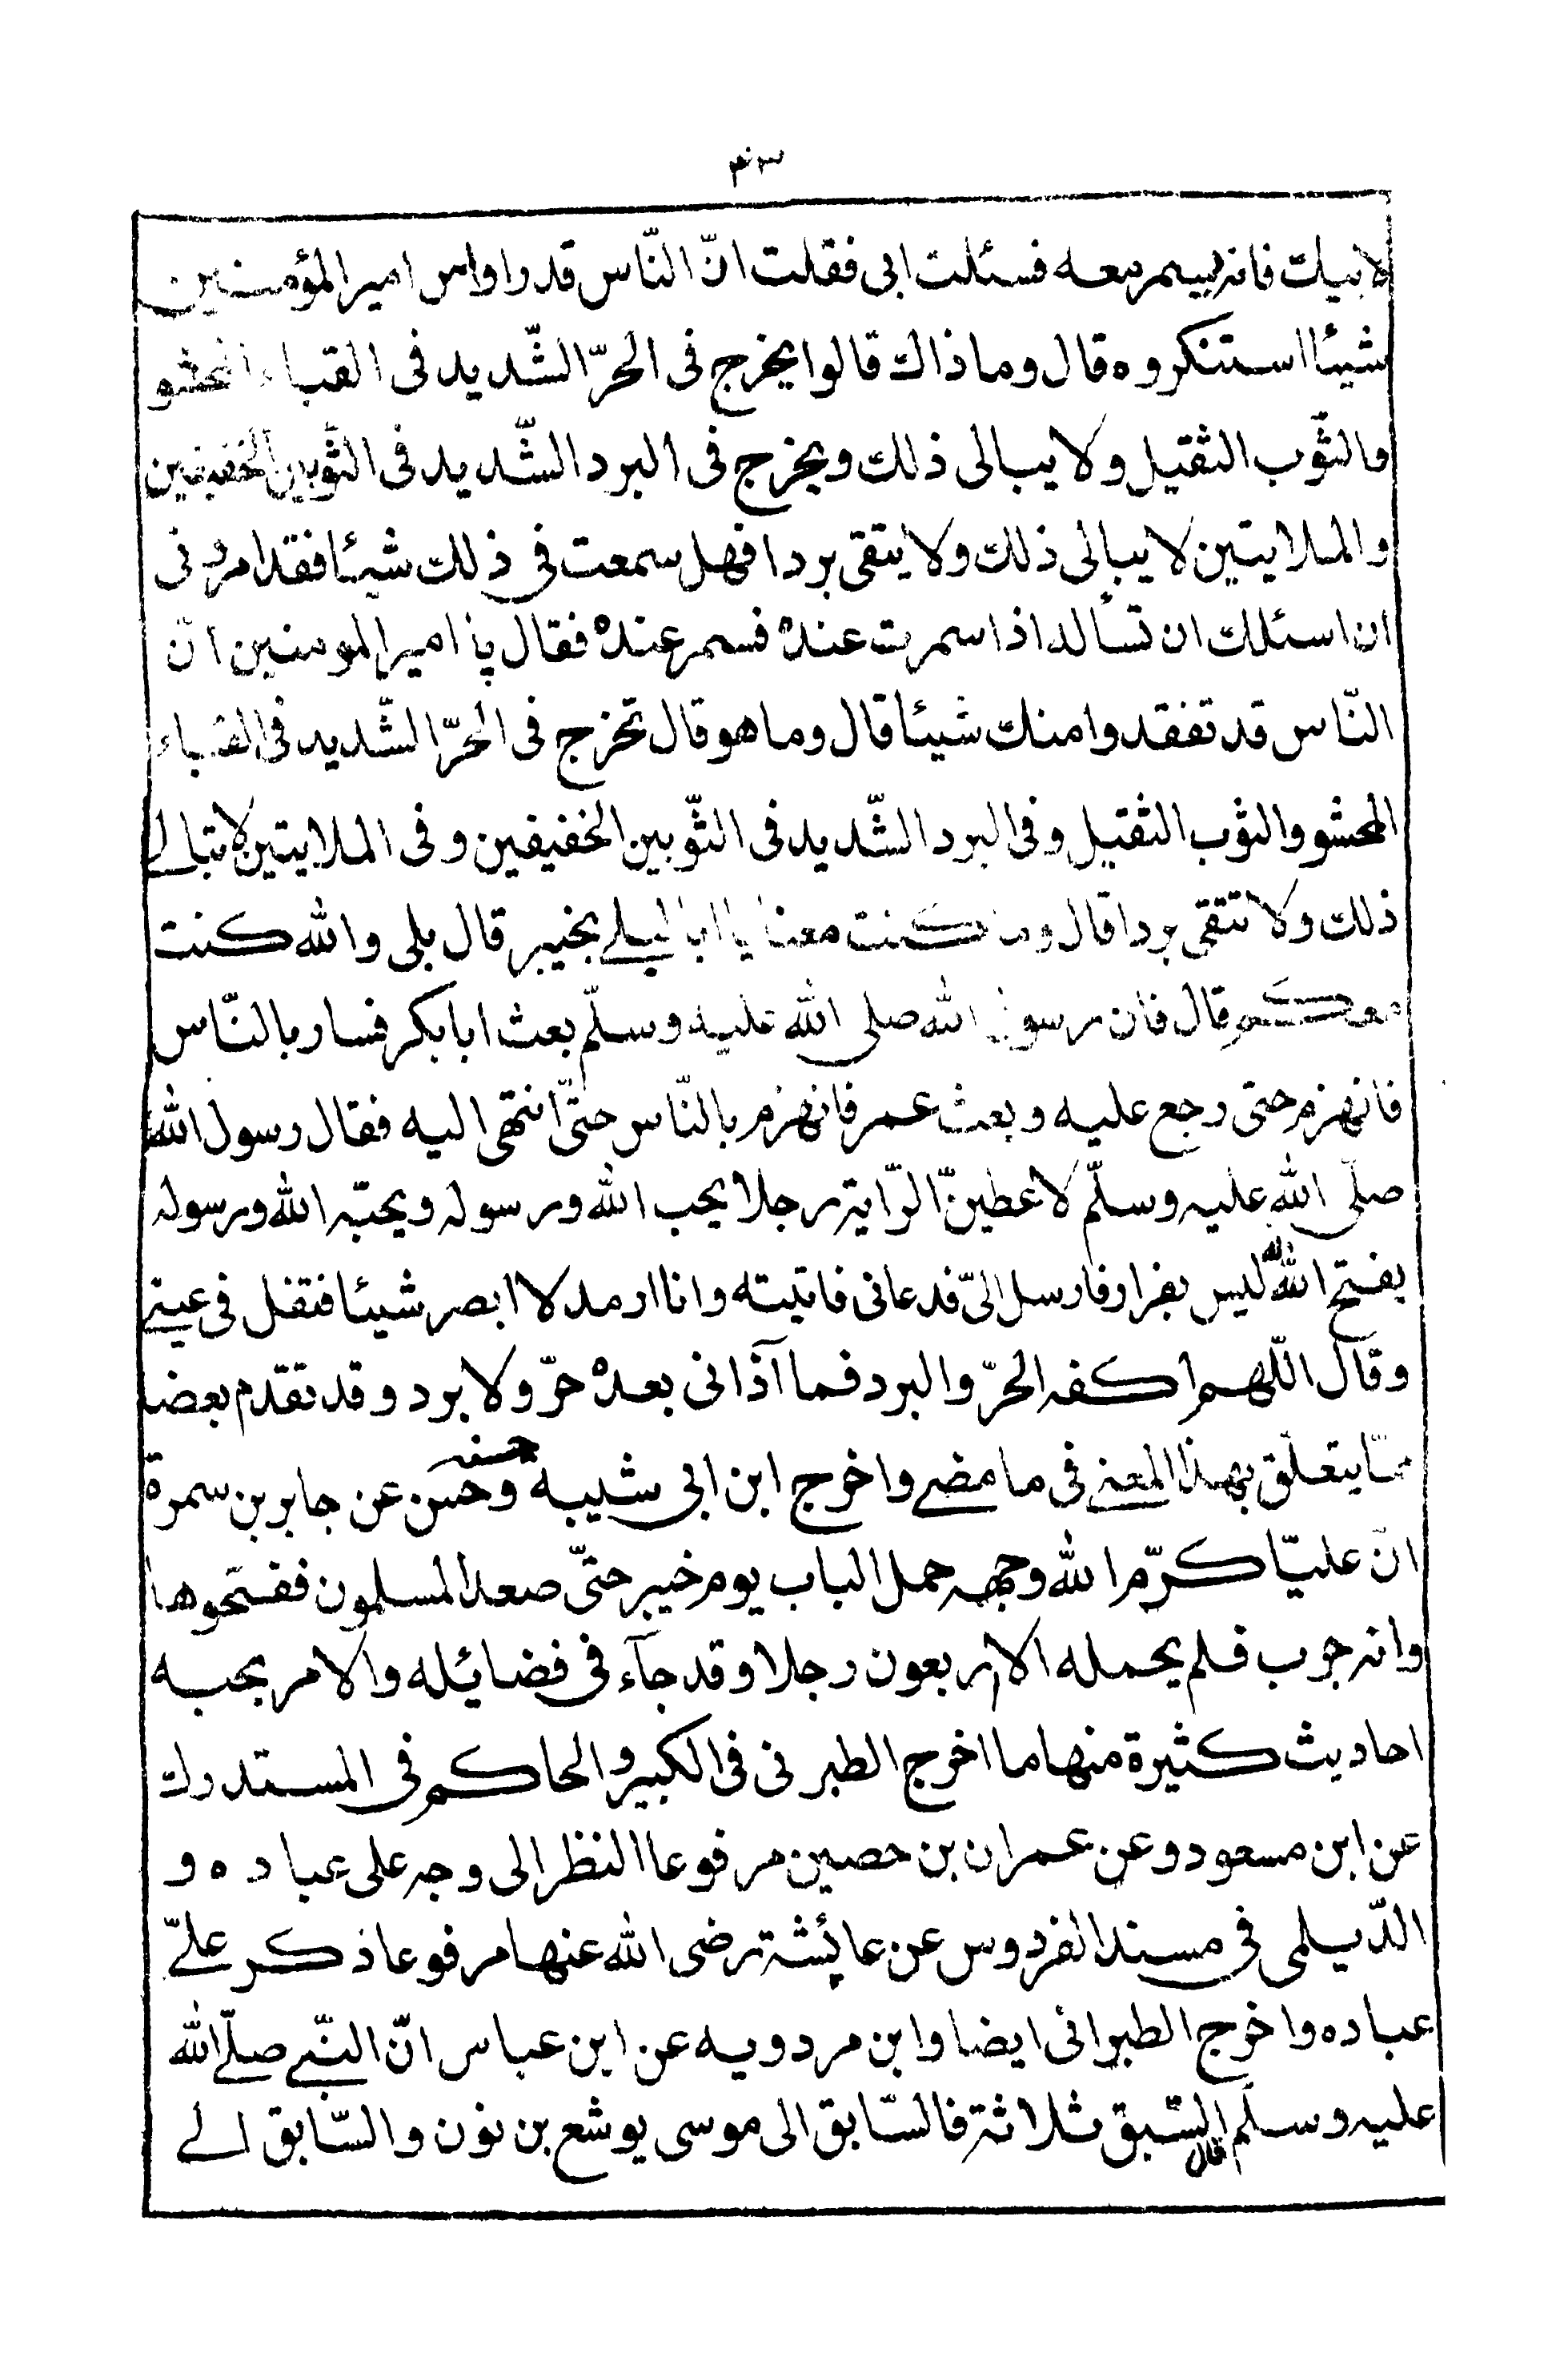 لابيك فانه يسمر معه فسئلت ابى فقلت انّ النّاس قد راوا من امير المؤمنين
شيئا استنكروه قال وما ذاك قالوا يخرج فى الحرّ الشّديد فى القباء المحشو
والثّوب الثقيل ولا يبالى ذلك ويخرج فى البرد الشّديد فى الثّوبين الخفيفين
والملايتين لا يبالى ذلك ولا يتقى بردا فهل سمعت فى ذلك شيئا فقد امرونى
ان اسئلك ان تسأله اذا سمرت عنده فسمر عنده فقال يا امير المومنين انّ
النّاس قد تفقدوا منك شيئا قال وما هو قال تخرج فى الحرّ الشّديد فى القباء
المحشو والثوب الثقيل وفى البرد الشّديد فى الثّوبين الخفيفين وفى الملايتين لا تبالے
ذلك ولا تتقى بردا قال وما كنت معنا يا ابا ليلے بخيبر قال بلى والله كنت
معكم قال فان رسول الله صلى الله عليه وسلّم بعث ابا بكر فسار بالنّاس
فانهزم حتى رجع عليه وبعث عمر فانهزم بالنّاس حتّى انتهى اليه فقال رسول الله
صلّى الله عليه وسلّم لاعطينّ الرّاية رجلا يحب الله ورسوله ويحبّه الله ورسوله
يفتح الله له ليس بفرار فارسل الىّ فدعانى فاتيته وانا ارمد لا ابصر شيئا فتفل فى عينے
وقال اللّهم اكفه الحرّ والبرد فما آذانى بعده حرّ ولا برد وقد تقدم بعضه
ممّا يتعلّق بهذا المعنے فى ما مضے واخرج ابن ابى شيبة وحسن عن جابر بن سمرة
انّ عليّا كرّم الله وجهه حمل الباب يوم خيبر حتّى صعد المسلمون ففتحوها
وانه جرب فلم يحمله الا اربعون رجلا وقد جآء فى فضائله والامر بحبه
احاديث كثيرة منها ما اخرج الطبرنى فى الكبير والحاكم فى المستدرك
عن ابن مسعود وعن عمران بن حصين مرفوعا النظر الى وجه على عباده و
الدّيلمى فى مسند الفردوس عن عائشة رضى الله عنها مرفوعا ذكر علےّ
عباده واخرج الطبرانى ايضا وابن مردويه عن ابن عباس انّ النّبے صلّے الله
عليه وسلّم قال السّبق ثلاثة فالسّابق الى موسى يوشع بن نون والسّابق الے